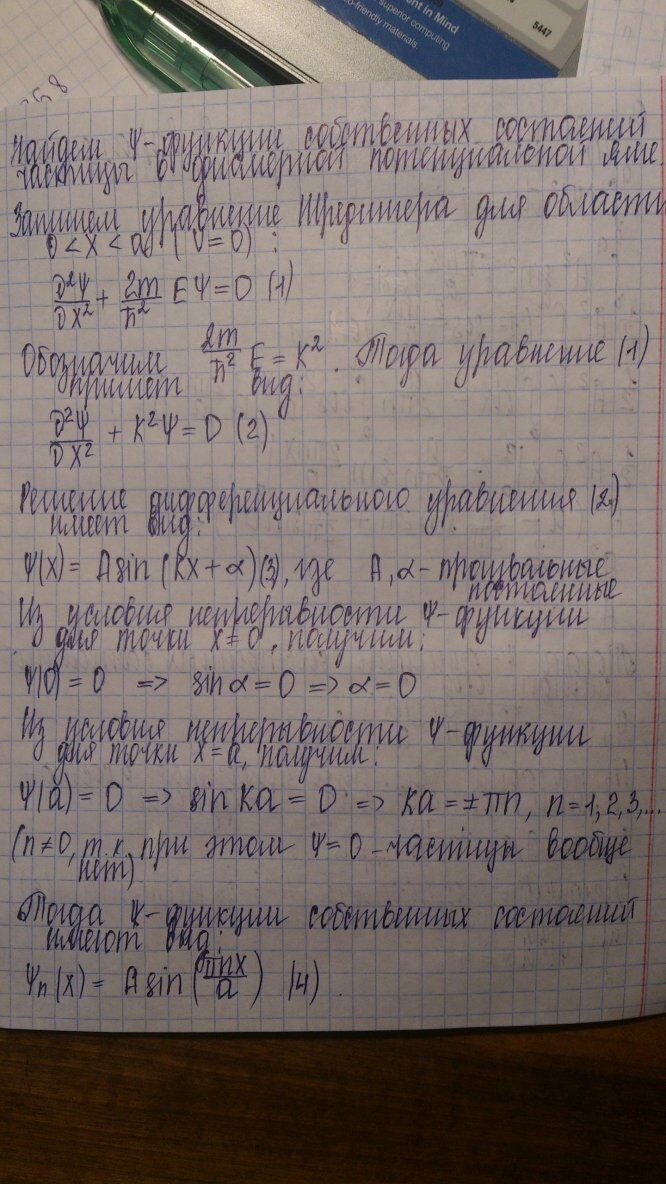 ent in Mind
superior computing
o-friendly materials.
5447
Найдем Ψ-функции собственных состояний
частицы в одномерной потенциальной яме
Запишем уравнение Шредингера для области
0 < x < a (U=0) :
∂²Ψ/∂x² + 2m/ħ² EΨ = 0 (1)
Обозначим 2m/ħ² E = K². Тогда уравнение (1)
примет вид:
∂²Ψ/∂x² + K²Ψ = 0 (2)
Решение дифференциального уравнения (2)
имеет вид:
Ψ(x) = A sin (Kx + α) (3), где A, α - произвольные
постоянные
Из условия непрерывности Ψ-функции
для точки x = 0, получим:
Ψ(0) = 0 => sin α = 0 => α = 0
Из условия непрерывности Ψ-функции
для точки x = a, получим:
Ψ(a) = 0 => sin Ka = 0 => Ka = ±πn, n = 1, 2, 3, ...
(n ≠ 0, т.к. при этом Ψ = 0 - частицы вообще
нет)
Тогда Ψ-функции собственных состояний
имеют вид:
Ψn(x) = A sin (πnx/a) (4).